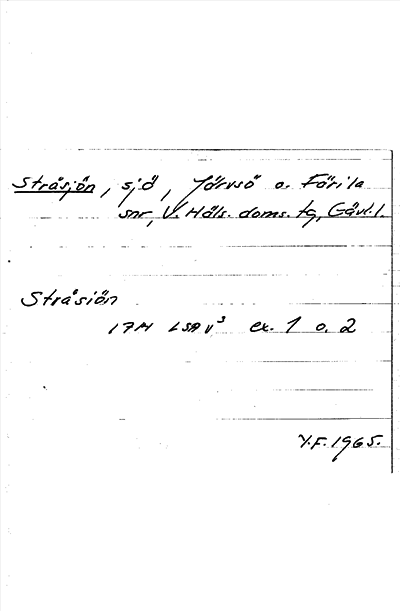 Stråsjön, sjö, Järvsö o. Färila
snr, V. Häls. doms. tg, Gävl.l.
Stråsiön
17M LSA V³ ex. 1 o. 2
Y.F. 1965.